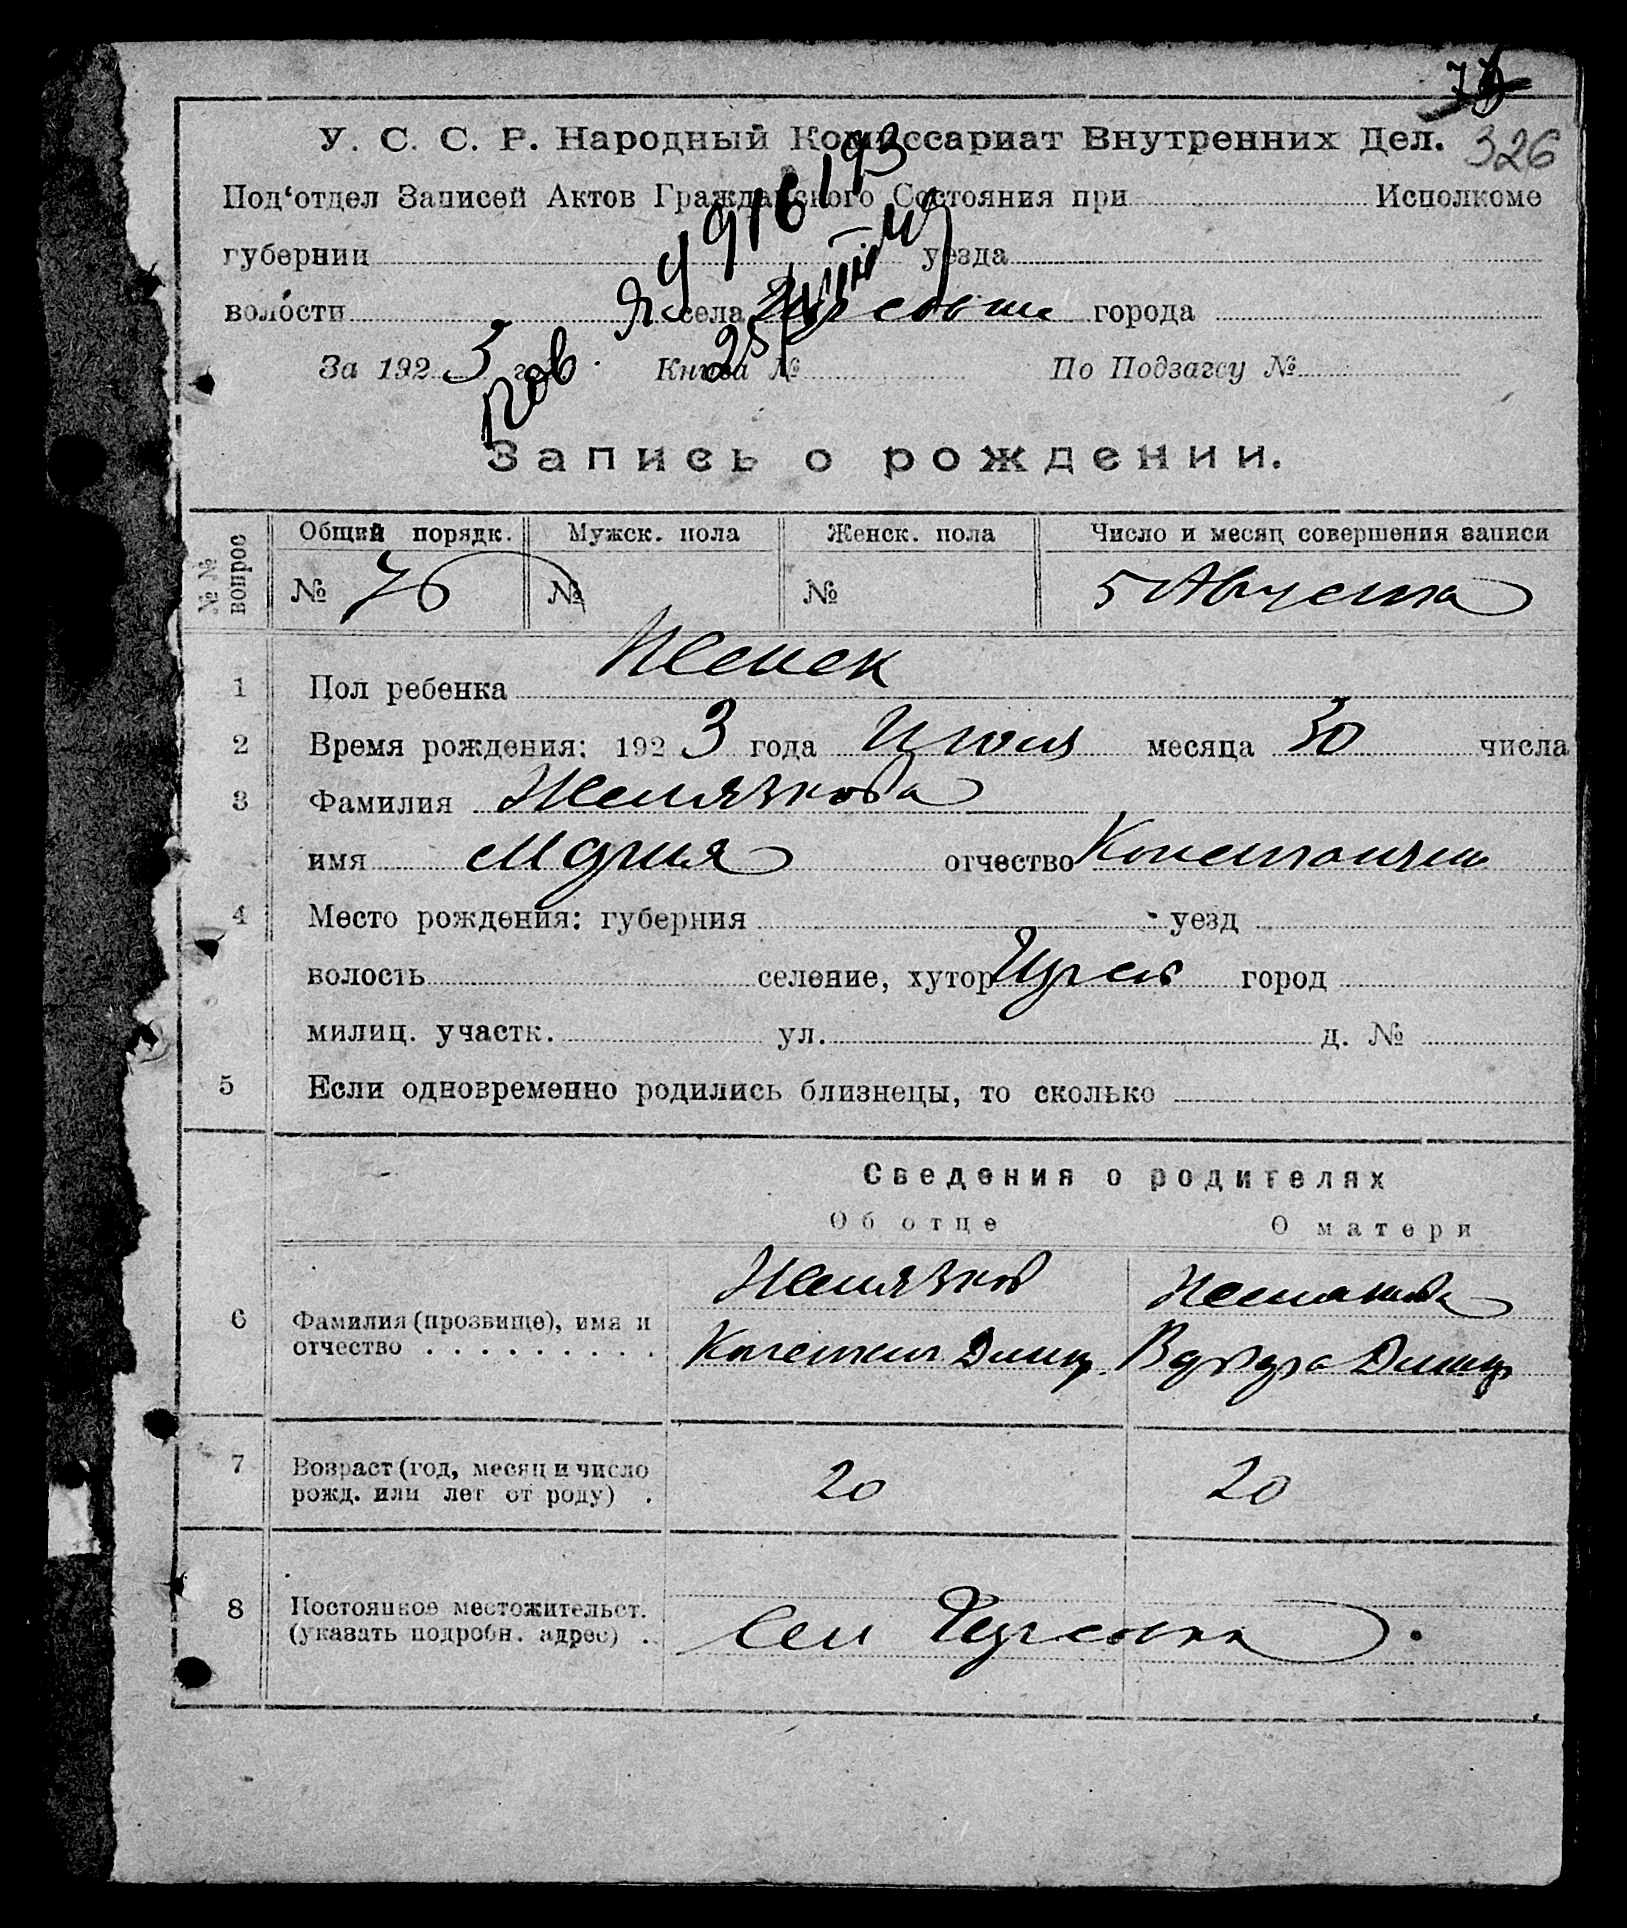 326
У. С. С. Р. Народный Комиссариат Внутренних Дел.
Под‘отдел Записей Актов Гражданского Состояния при Исполкоме
губернии уезда
волости села города
За 192 3 го Книга № По Подзагсу №
Запись о рождении.
№№ вопрос Общий порядк. Мужск. пола Женск. пола Число и месяц совершения записи
№ 76 № № 5 Августа
1 Пол ребенка Женск
2 Время рождения: 192 3 года Июля месяца 30 числа
3 Фамилия Желязкова
имя Мария отчество
4 Место рождения: губерния уезд
волость селение, хутор город
милиц. участк. ул. д. №
5 Если одновременно родились близнецы, то сколько
Сведения о родителях
Об отце О матери
6 Фамилия (прозвище), имя и отчество Желязков
7 Возраст (год, месяц и число рожд. или лет от роду) 20 20
8 Постоянное местожительст. (указать подробн. адрес) Сел